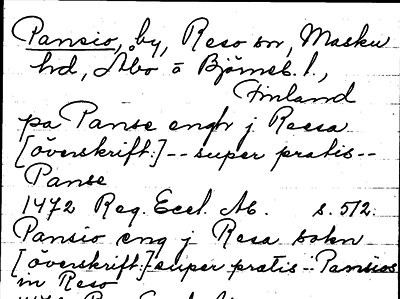 Pansio, by, Reso sn, Masku
hd, Åbo o Björneb. l.,
Finland
pa Panse engh j Reesa
[överskrift:] -- super pratis --
Panse
1472 Reg. Eccl. Ab. s. 512.
Pansio eng j Resa sokn
[överskrift:] - super pratis -- Pansios
in Reso